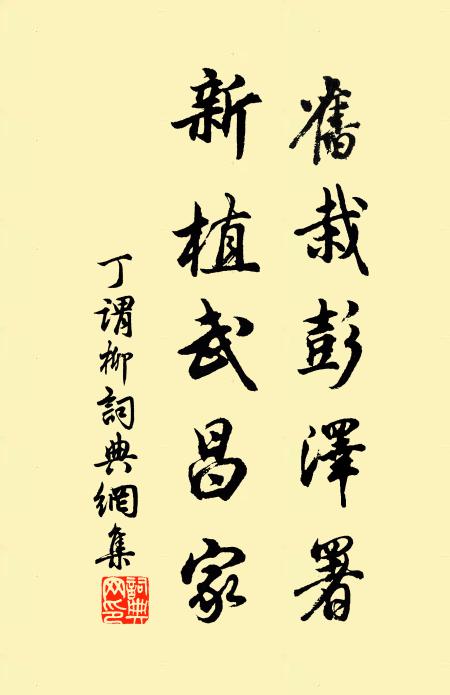 舊栽彭澤署
新植武昌家
丁謂柳詞典網集
詞典网印